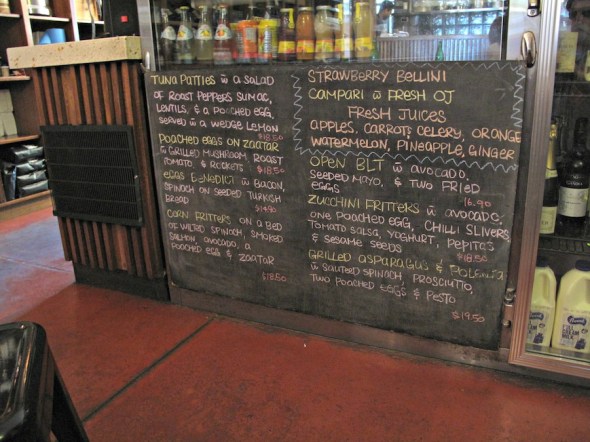 TUNA PATTIES w̅ A SALAD
OF ROAST PEPPERS SUMAC,
LENTILS, & A POACHED EGG,
SERVED w̅ A WEDGE LEMON
$18.50
POACHED EGGS ON ZAATAR
w̅ GRILLED MUSHROOM, ROAST
TOMATO & ROCKETS $18.50
EGGS BENEDICT w̅ BACON,
SPINACH ON SEEDED TURKISH
BREAD $14.90
CORN FRITTERS ON A BED
OF WILTED SPINACH, SMOKED
SALMON, AVOCADO, A
POACHED EGG & ZAATAR
$18.50
STRAWBERRY BELLINI
CAMPARI w̅ FRESH OJ
FRESH JUICES
APPLES, CARROT, CELERY, ORANGE
WATERMELON, PINEAPPLE, GINGER
OPEN BLT w̅ AVOCADO,
SEEDED MAYO, & TWO FRIED
EGGS 16.90
ZUCCHINI FRITTERS w̅ AVOCADO,
ONE POACHED EGG, CHILLI SLIVERS,
TOMATO SALSA, YOGHURT, PEPITAS
& SESAME SEEDS $18.50
GRILLED ASPARAGUS & POLENTA
w̅ SAUTEED SPINACH, PROSCIUTTO,
TWO POACHED EGGS & PESTO
$19.50